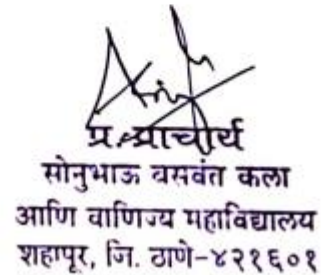 प्र.प्राचार्य
सोनुभाऊ बसवंत कला
आणि वाणिज्य महाविद्यालय
शहापूर, जि. ठाणे-४२१६०१